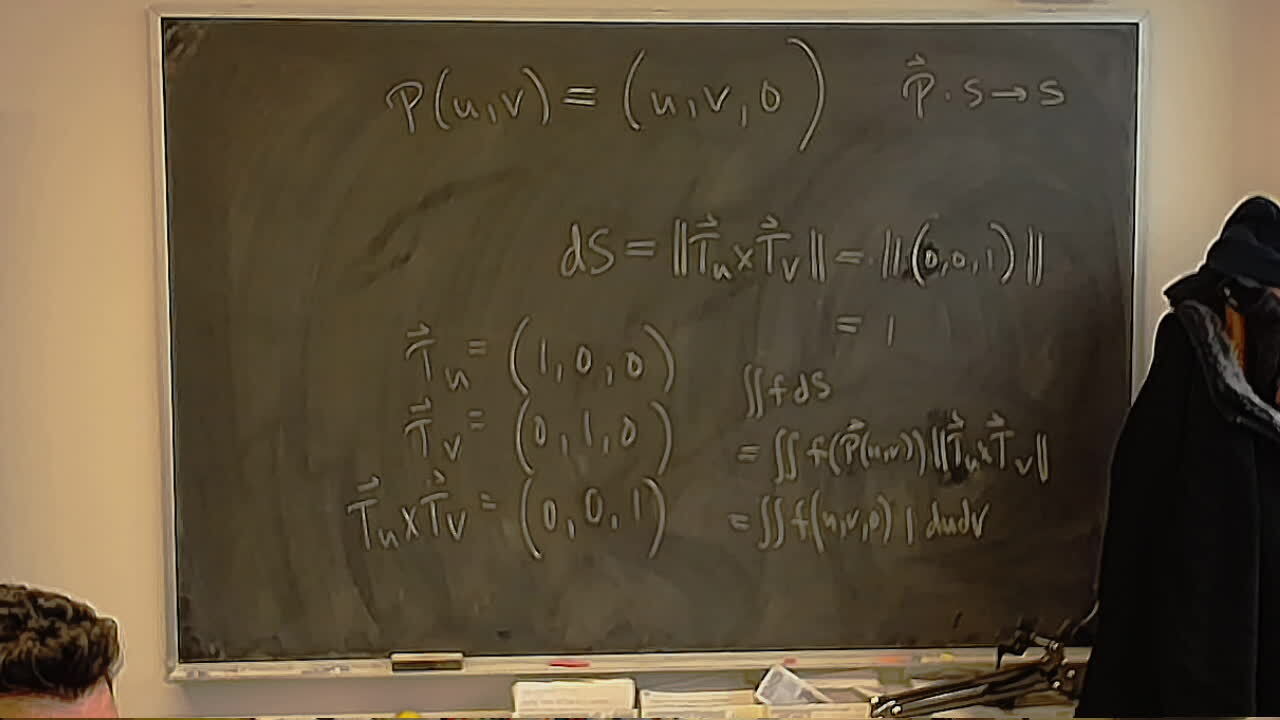 P(u,v) = (u,v,0) P⃗ . S → S
dS = ||T⃗u x T⃗v|| = ||(0,0,1)||
= 1
T⃗u = (1,0,0)
T⃗v = (0,1,0)
T⃗u x T⃗v = (0,0,1)
∬ f dS
= ∬ f(P⃗(u,v)) ||T⃗u x T⃗v||
= ∬ f(u,v,0) 1 du dv